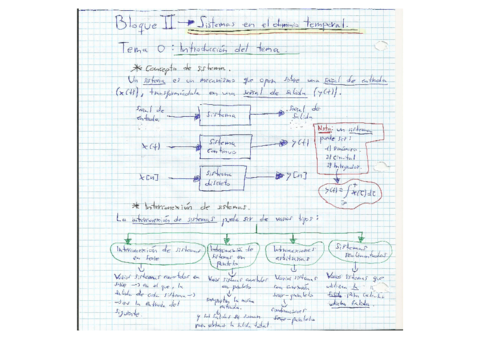 Bloque II → Sistemas en el dominio temporal.
Tema 0: Introducción del tema
* Concepto de sistema.
Un sistema es un mecanismo que opera sobre una señal de entrada
(x(t)), transformándola en una señal de salida (y(t)).
señal de entrada → sistema → señal de salida
x(t) → sistema continuo → y(t)
x[n] → sistema discreto → y[n]
Nota: un sistema
puede ser:
y(t) = ∫ x(τ) dτ
* Interconexión de sistemas.
La interconexión de sistemas puede ser de varios tipos:
Interconexión de sistemas en serie
Interconexión de sistemas en paralelo
Interconexiones
Sistemas realimentados
Varios sistemas conectados en
serie → en el que, la
salida de cada sistema →
→ es la entrada del
siguiente
Varios sistemas conectados
en paralelo
comparten la misma
entrada.
y las salidas se suman
para obtener la salida total
Varios sistemas
con conexión
serie-paralelo
combinaciones
serie-paralelo
Varios sistemas que
utilizan la
salida para
dicha